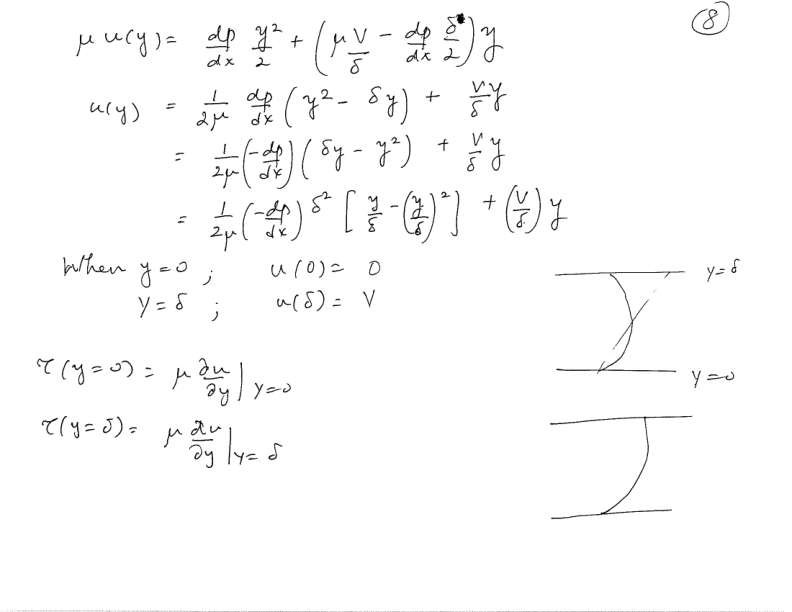 ⑧
μ u(y) = dp/dx y²/2 + (μ V/δ - dp/dx δ/2) y
u(y) = 1/2μ dp/dx (y² - δy) + V/δ y
= 1/2μ (-dp/dx) (δy - y²) + V/δ y
= 1/2μ (-dp/dx) δ² [y/δ - (y/δ)²] + (V/δ) y
When y=0 ; u(0) = 0
y=δ
Y=δ ; u(δ) = V
τ(y=0) = μ ∂u/∂y | y=0
Y=0
τ(y=δ) = μ ∂u/∂y | y=δ